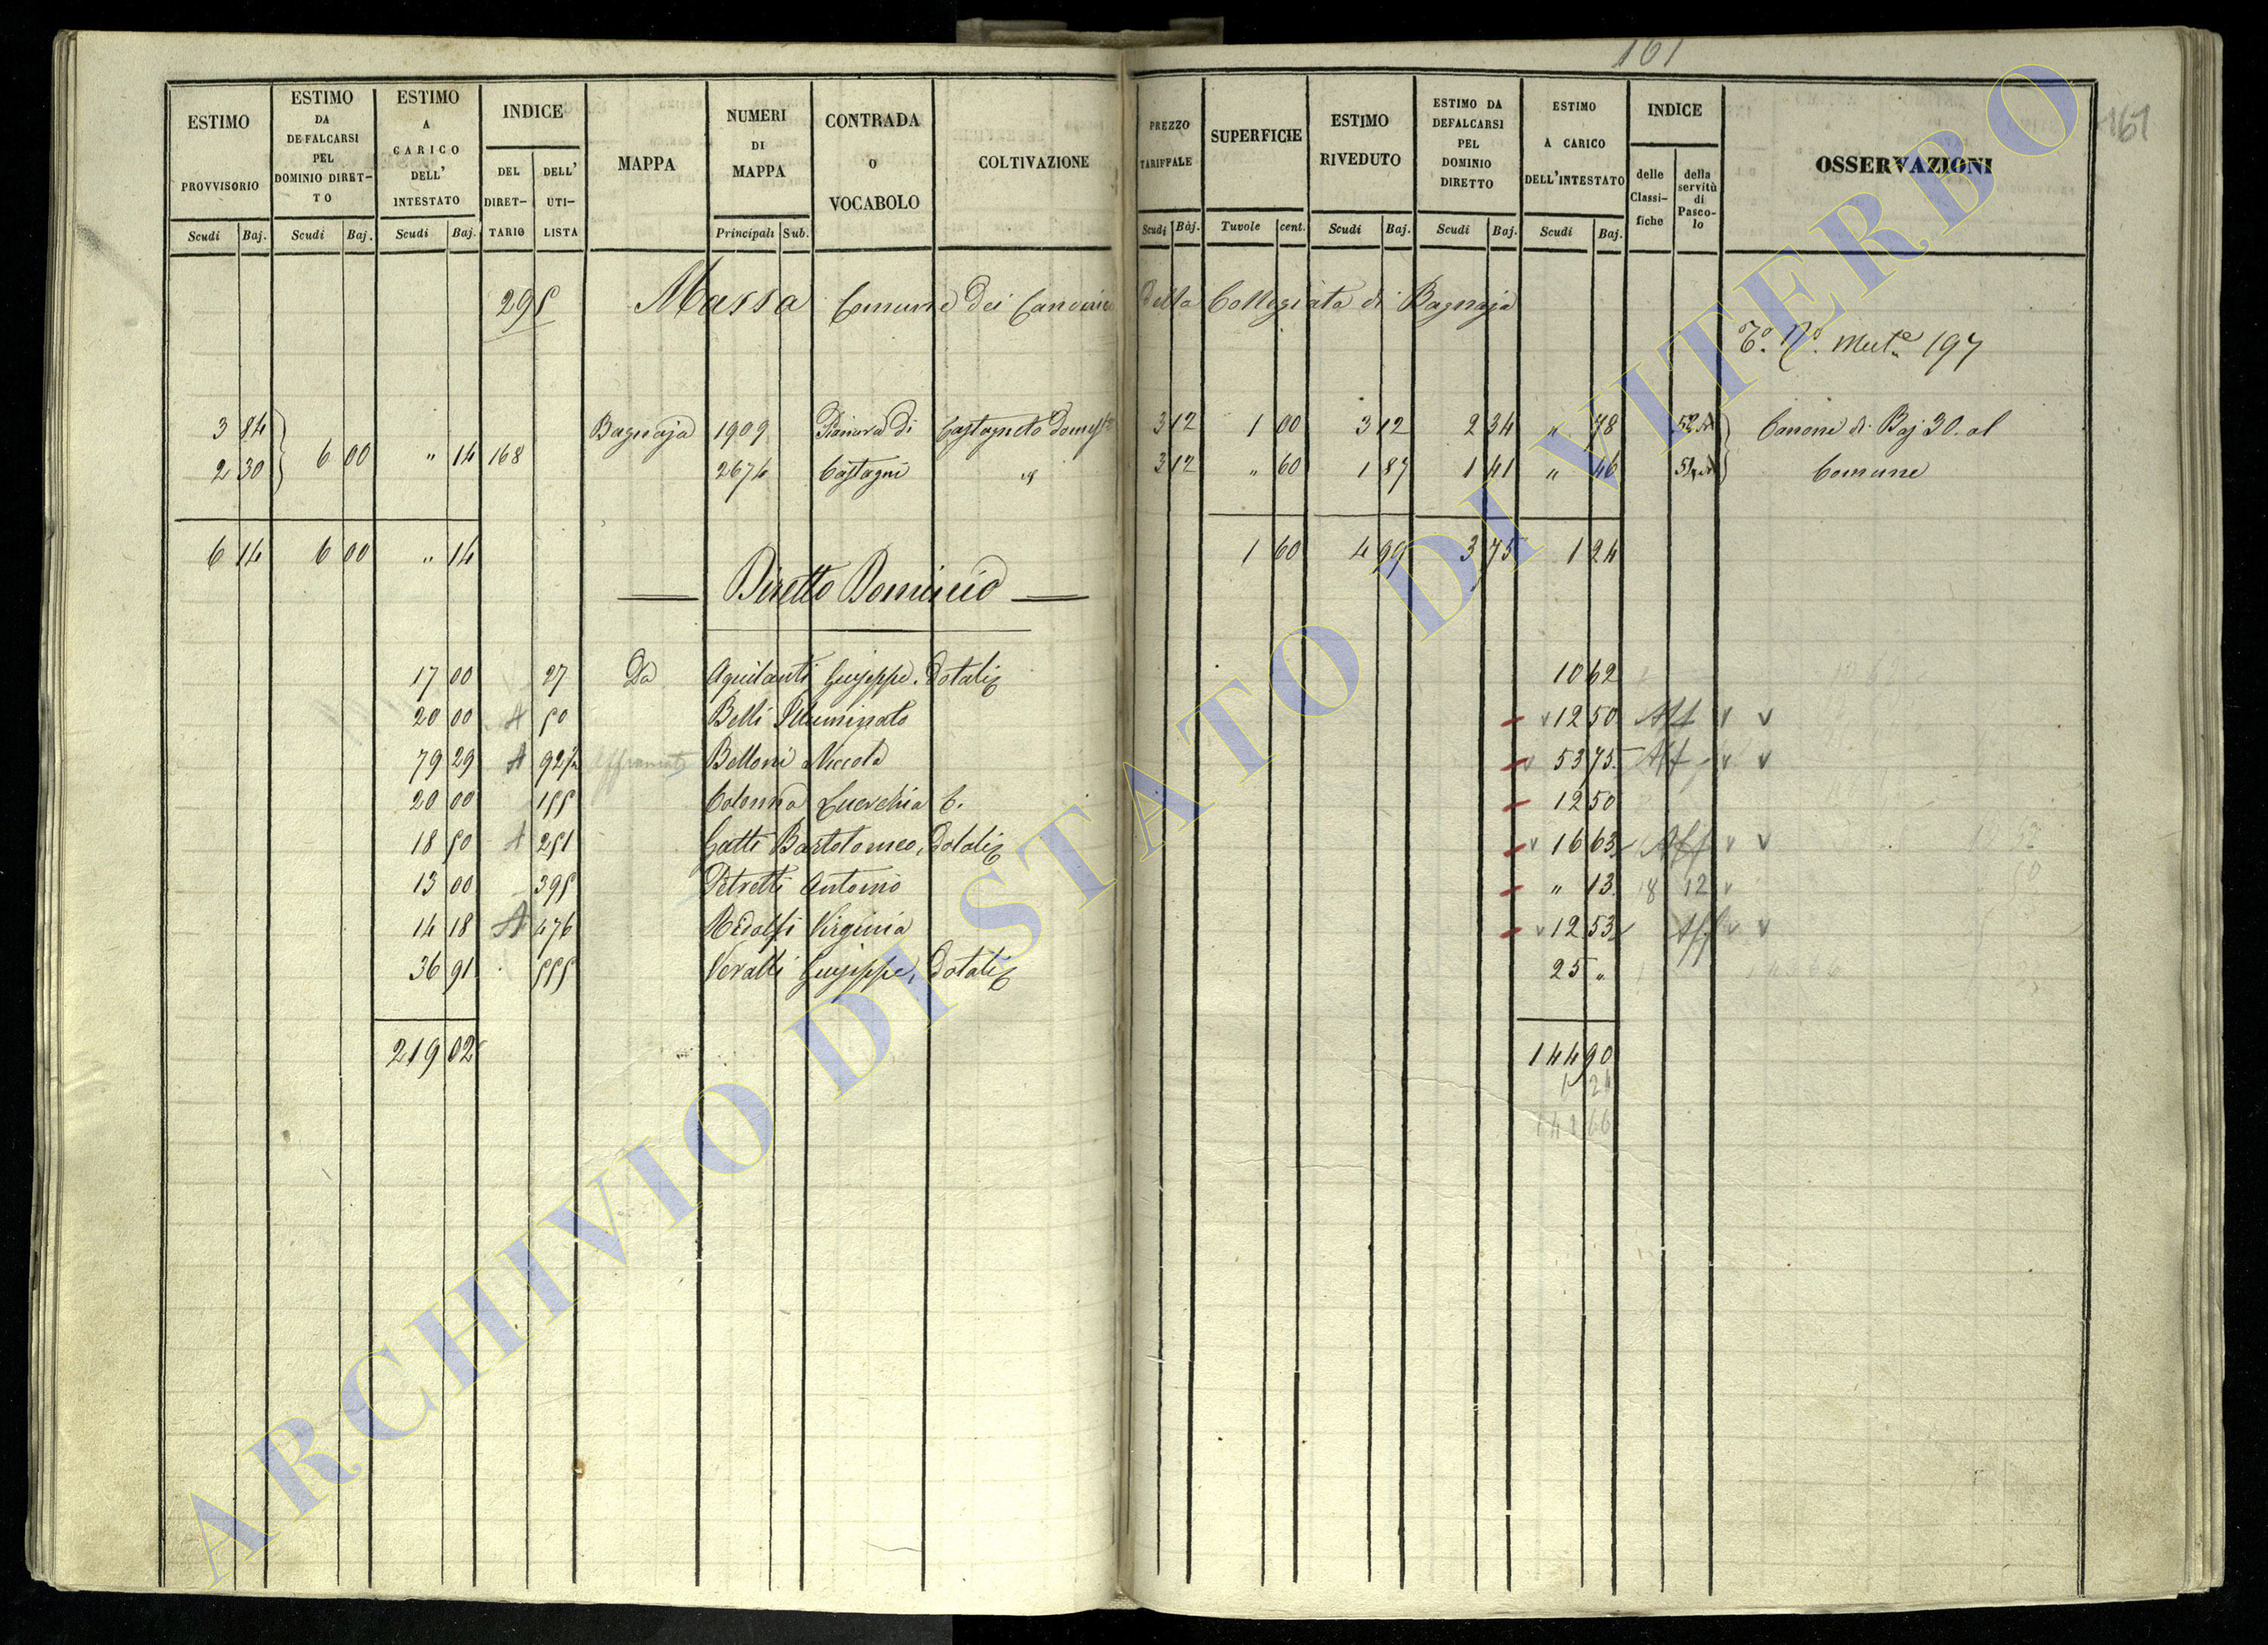 161
161
ESTIMO PROVVISORIO | ESTIMO DA DEFALCARSI PEL DOMINIO DIRETTO | ESTIMO A CARICO DELL' INTESTATO | INDICE | MAPPA | NUMERI DI MAPPA | CONTRADA O VOCABOLO | COLTIVAZIONE | PREZZO TARIFFALE | SUPERFICIE | ESTIMO RIVEDUTO | ESTIMO DA DEFALCARSI PEL DOMINIO DIRETTO | ESTIMO A CARICO DELL'INTESTATO | INDICE | OSSERVAZIONI
DEL DIRETTARIO | DELL' UTILISTA | delle Classifiche | della servitù di Pascolo
Scudi | Baj. | Scudi | Baj. | Scudi | Baj. | Principali | Sub. | Scudi | Baj. | Tavole | cent. | Scudi | Baj. | Scudi | Baj. | Scudi | Baj.
295 Massa Comune dei Canonici della Collegiata di Bagnaja
To. No. Mute. 197
3 84 | 6 00 | " 14 | 168 | Bagnaja | 1909 | Pianura di | Castagneto Domest | 3 12 | 1 00 | 3 12 | 2 34 | " 78 | Canone di Baj 30. al
2 30 | 2674 | Castagni | " | 3 12 | " 60 | 1 87 | 1 41 | " 46 | Comune
6 14 | 6 00 | " 14 | 1 60 | 4 99 | 3 75 | 1 24
Diretto Dominio
17 00 | 27 | Da | Aquilanti Giuseppe. Dotali | 10 62
20 00 | A | 50 | Belli Illuminato | 12 50 | Aff
79 29 | A | 92½ | Affrancato | Belloni Niccola | 53 75 | Aff
20 00 | 155 | Colonna Lucrehia C. | 12 50
18 50 | A | 251 | Gatti Bartolomeo, Dotali | 16 63 | Aff
13 00 | 395 | Petretti Antonio | " 13 | 18 12
14 18 | A | 476 | Ridolfi Virginia | 12 53 | Aff
36 91 | 555 | Veralli Giuseppe, Dotali | 25 "
219 02 | 144 90
1 24
ARCHIVIO DI STATO DI VITERBO